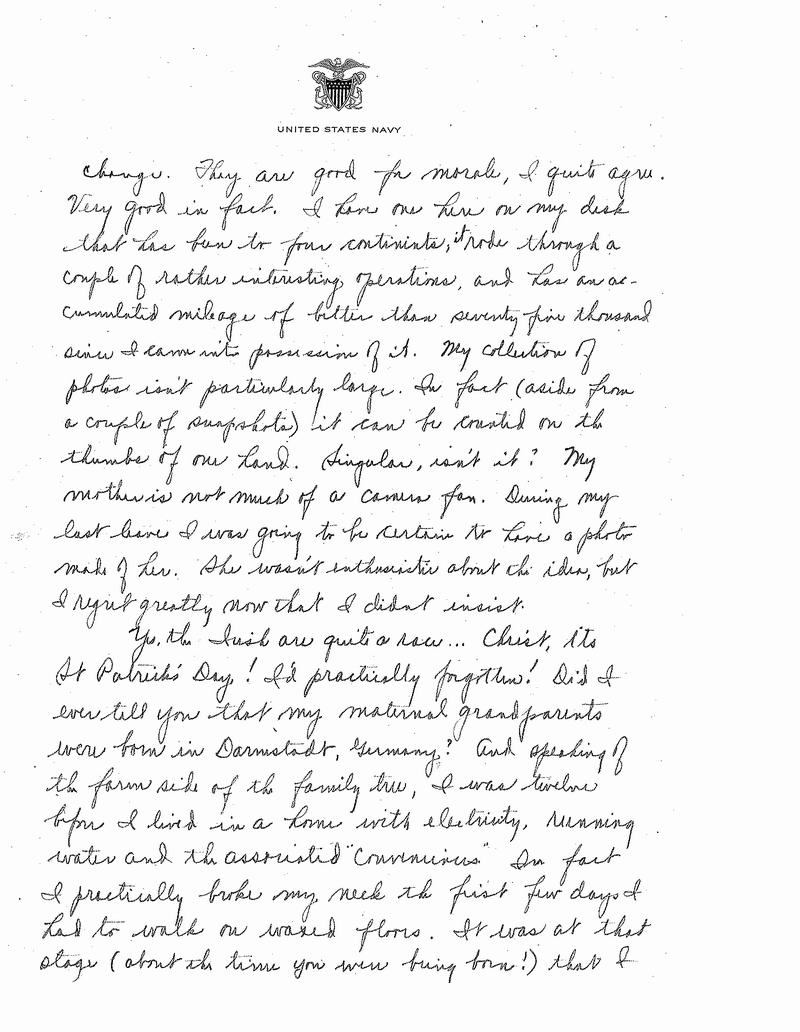 UNITED STATES NAVY
change. They are good for morale, I quite agree.
Very good in fact. I have one here on my desk
that has been to four continents, it rode through a
couple of rather interesting operations, and has an ac-
cumulated mileage of better than seventy five thousand
since I came into possession of it. My collection of
photos isn't particularly large. In fact (aside from
a couple of snapshots) it can be counted on the
thumbs of one hand. Singular, isn't it? My
mother is not much of a camera fan. During my
last leave I was going to be certain to have a photo
made of her. She wasn't enthusiastic about the idea, but
I regret greatly now that I didnt insist.
Yes, the Irish are quite a race... Christ, its
St Patrick's Day! I'd practically forgotten! Did I
ever tell you that my maternal grandparents
were born in Darmstadt, Germany? And speaking of
the farm side of the family tree, I was twelve
before I lived in a home with electricity, running
water and the associated "conveniences" In fact
I practically broke my neck the first few days I
had to walk on waxed floors. It was at that
stage (about the time you were being born!) that I